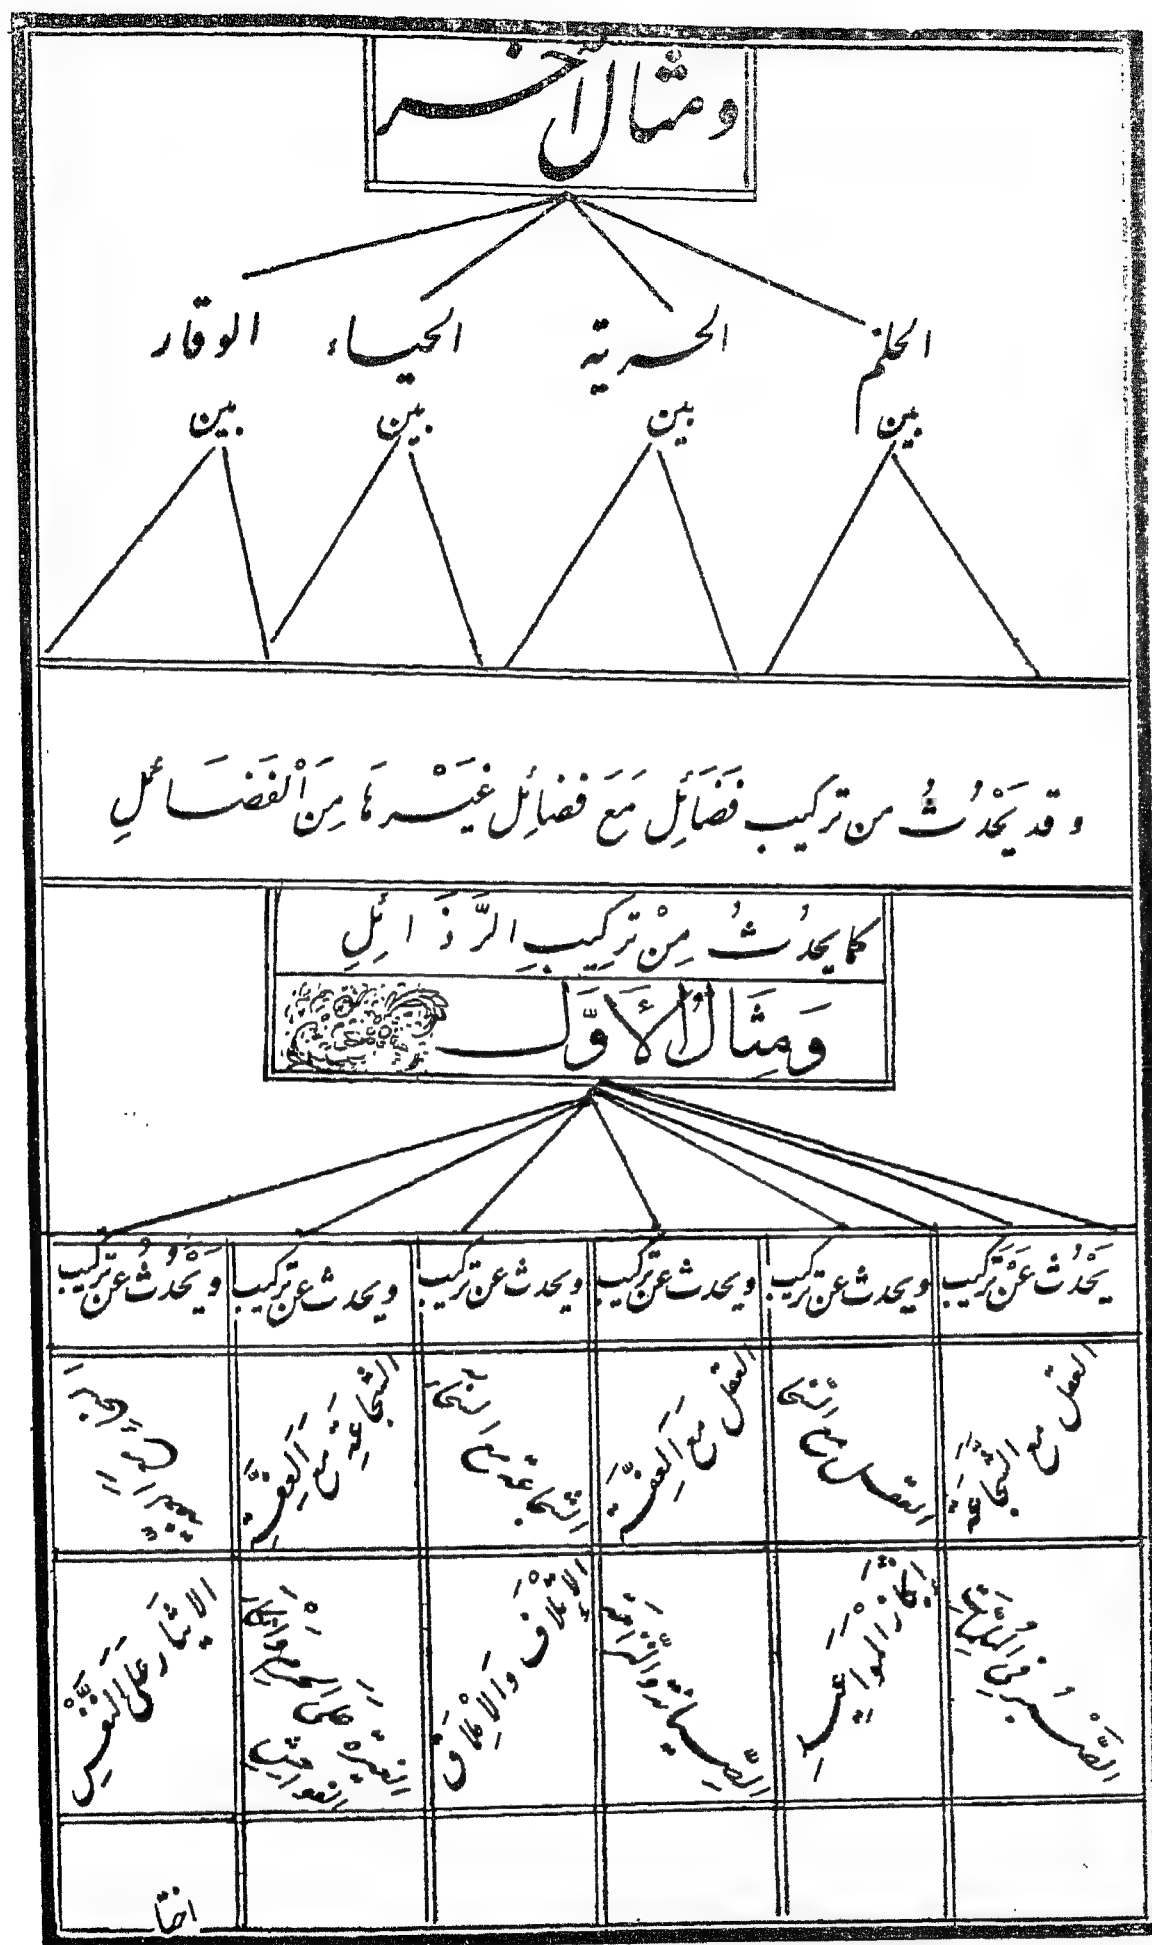 ومثال آخر
الحلم
الحرية
الحياء
الوقار
بين
بين
بين
بين
وقد يَحْدُثُ من تركيب فَضَائِل مَعَ فضائِل غَيْرهَا مِنَ الْفَضَائلِ
كما يحدُثُ مِنْ تركِيبِ الرَّذَائِلِ
وَمِثَالُ الأَوَّل
يَحْدُث عَنْ تركيب
ويحدث عن تركيب
ويحدث عن تركيب
ويحدث عن تركيب
ويحدث عن تركيب
وَيَحْدُثُ عن تركيب
العقل مع الشَّجاعَة
العقل مع السَّخا
العقل مَعَ العِفَّة
الشجاعة مع السَّخا
الشجاعَة مَعَ العِفَّة
الصَّبْر فِي المُلِمَّاتِ
إنْجَازْ المَوَاعِيدِ
الصِّيانَة وَالنَّزَاهَة
الإتْلاَف وَالإمْلاَق
الغَيْرَة عَلَى الحرم
الفواحش
الايثار عَلَى النَّفْسِ